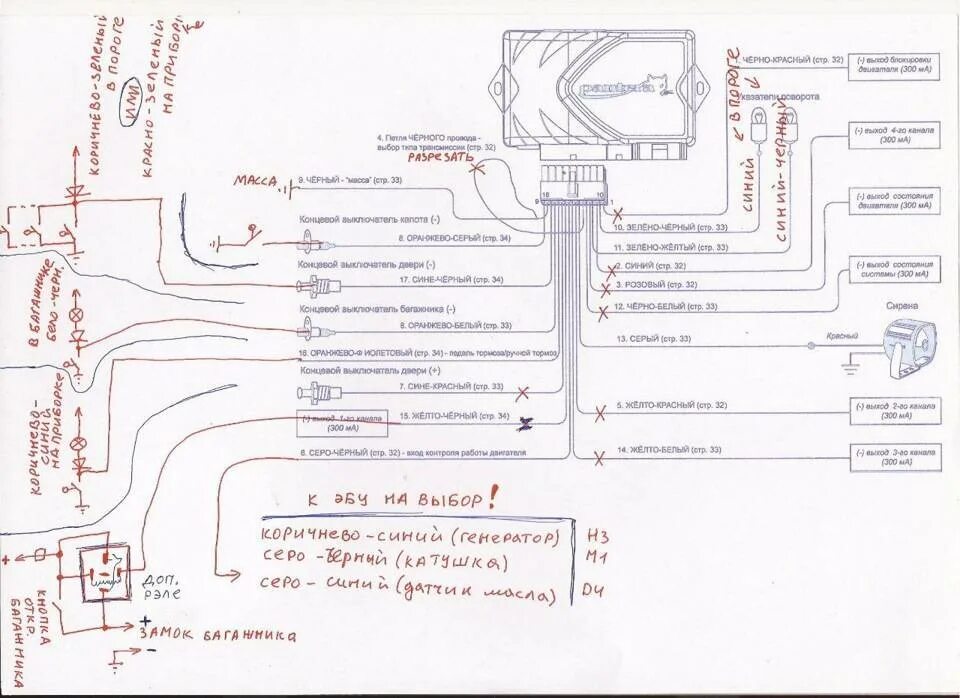 КОРИЧНЕВО-ЗЕЛЕНЫЙ
В ПОРОГЕ
ИЛИ
КРАСНО-ЗЕЛЕНЫЙ
НА ПРИБОРКЕ
pantera
4. Петля ЧЁРНОГО провода -
выбор типа трансмиссии (стр. 32)
РАЗРЕЗАТЬ
МАССА
9. ЧЁРНЫЙ - "масса" (стр. 33)
Концевой выключатель капота (-)
8. ОРАНЖЕВО-СЕРЫЙ (стр. 34)
Концевой выключатель двери (-)
17. СИНЕ-ЧЁРНЫЙ (стр. 34)
Концевой выключатель багажника (-)
8. ОРАНЖЕВО-БЕЛЫЙ (стр. 33)
16. ОРАНЖЕВО-ФИОЛЕТОВЫЙ (стр. 34) - педаль тормоза/ручной тормоз
Концевой выключатель двери (+)
7. СИНЕ-КРАСНЫЙ (стр. 33)
(-) выход 1-го канала
(300 мА)
15. ЖЁЛТО-ЧЁРНЫЙ (стр. 34)
6. СЕРО-ЧЁРНЫЙ (стр. 32) - вход контроля работы двигателя
18
10
9
1
ЧЁРНО-КРАСНЫЙ (стр. 32)
(-) выход блокировки
двигателя (300 мА)
Указатели поворота
В ПОРОГЕ
СИНИЙ
СИНИЙ-ЧЕРНЫЙ
(-) выход 4-го канала
(300 мА)
10. ЗЕЛЁНО-ЧЁРНЫЙ (стр. 33)
11. ЗЕЛЁНО-ЖЁЛТЫЙ (стр. 33)
(-) выход состояния
двигателя (300 мА)
2. СИНИЙ (стр. 32)
3. РОЗОВЫЙ (стр. 32)
(-) выход состояния
системы (300 мА)
12. ЧЁРНО-БЕЛЫЙ (стр. 33)
Сирена
13. СЕРЫЙ (стр. 33)
Красный
5. ЖЁЛТО-КРАСНЫЙ (стр. 32)
(-) выход 2-го канала
(300 мА)
14. ЖЁЛТО-БЕЛЫЙ (стр. 33)
(-) выход 3-го канала
(300 мА)
В БАГАЖНИКЕ
БЕЛО-ЧЕРН.
КОРИЧНЕВО-
СИНИЙ
НА ПРИБОРКЕ
К ЭБУ НА ВЫБОР!
КОРИЧНЕВО-СИНИЙ (генератор) H3
СЕРО-ЧЕРНЫЙ (КАТУШКА) M1
СЕРО-СИНИЙ (датчик масла) D4
+
ДОП.
РЭЛЕ
КНОПКА
ОТКР.
БАГАЖНИКА
+
ЗАМОК БАГАЖНИКА
-